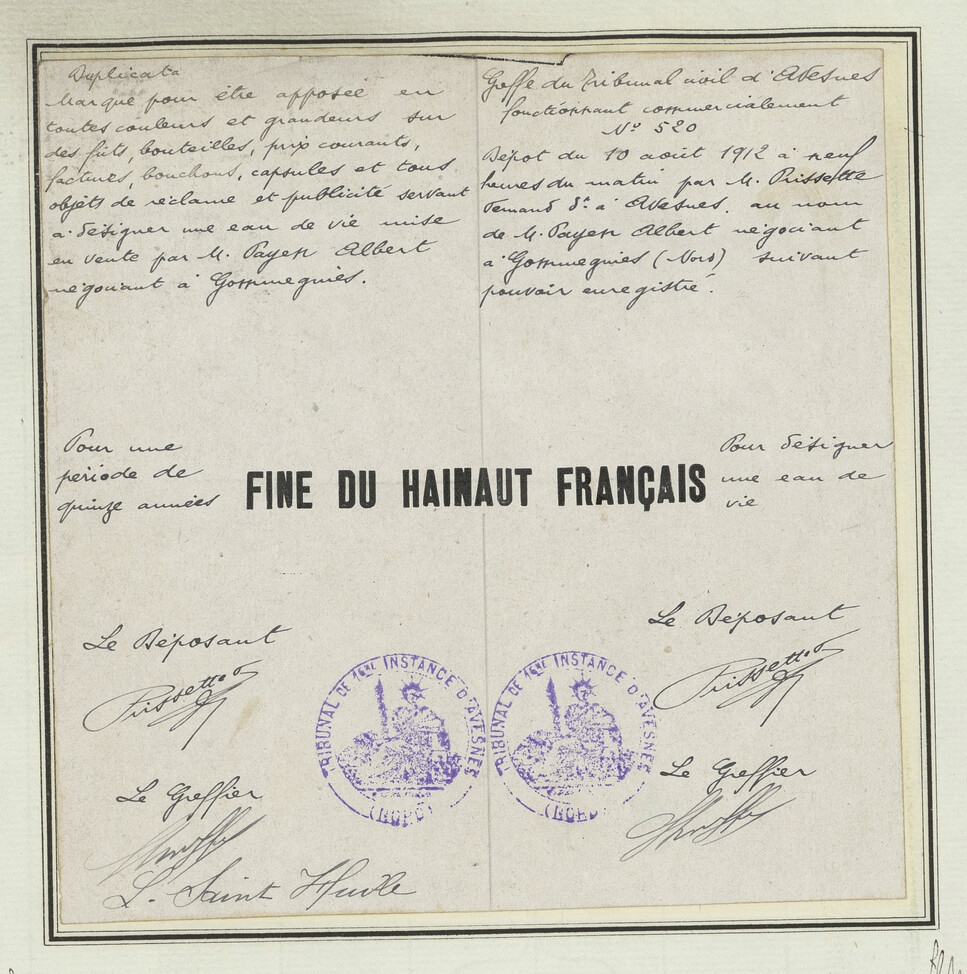 Duplicata
Marque pour être apposée en
toutes couleurs et grandeurs sur
des fûts, bouteilles, prix courants,
factures, bouchons, capsules et tous
objets de réclame et publicité servant
à désigner une eau de vie mise
en vente par M. Payen Albert
négociant à Gommegnies.
Greffe du Tribunal civil d'Avesnes
fonctionnant commercialement
N° 520
Dépot du 10 août 1912 à neuf
heures du matin par M. Prissette
Fernand dt à Avesnes, au nom
de M. Payen Albert négociant
à Gommegnies (Nord) suivant
pouvoir enregistré.
Pour une
période de
quinze années
FINE DU HAINAUT FRANÇAIS
Pour désigner
une eau de
vie
Le Déposant
Prissette
Le Déposant
Prissette
TRIBUNAL DE 1ERE INSTANCE D'AVESNES
(NORD)
TRIBUNAL DE 1ERE INSTANCE D'AVESNES
(NORD)
Le Greffier
Le Greffier
L. Saint